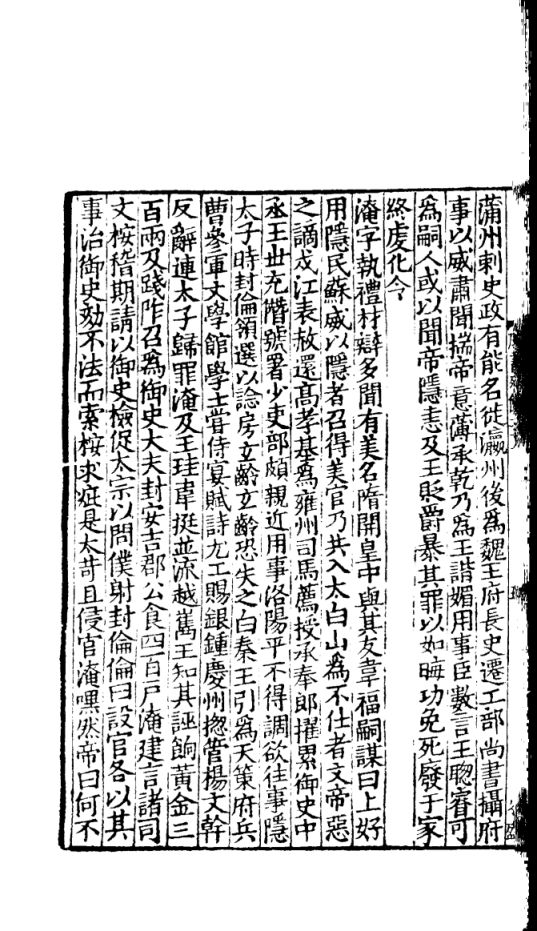 蒲州刺史政有能名徙瀛州後爲魏王府長史遷工部尚書攝府
事以威肅聞揣帝意薄承乾乃爲王諧媚用事臣數言王聦睿可
爲嗣人或以聞帝隱恚及王貶爵暴其罪以如晦功免死廢于家
終䖍化令
淹字執禮材辯多聞有美名隋開皇中與其友韋福嗣謀曰上好
用隱民蘇威以隱者召得美官乃共入太白山爲不仕者文帝惡
之謫戍江表赦還髙孝基爲雍州司馬薦授承奉郎擢累御史中
丞王世充僭號署少吏部頗親近用事洛陽平不得調欲往事隱
太子時封倫領選以諗房玄齡玄齡恐失之白秦王引爲天策府兵
曹參軍文學館學士嘗侍宴賦詩尤工賜銀鍾慶州揔管楊文幹
反辭連太子歸罪淹及王珪韋挺並流越巂王知其誣餉黃金三
百兩及踐阼召爲御史大夫封安吉郡公食四百戸淹建言諸司
文桉稽期請以御史檢促太宗以問僕射封倫倫曰設官各以其
事治御史劾不法而索桉求疵是太苛且侵官淹嘿然帝曰何不